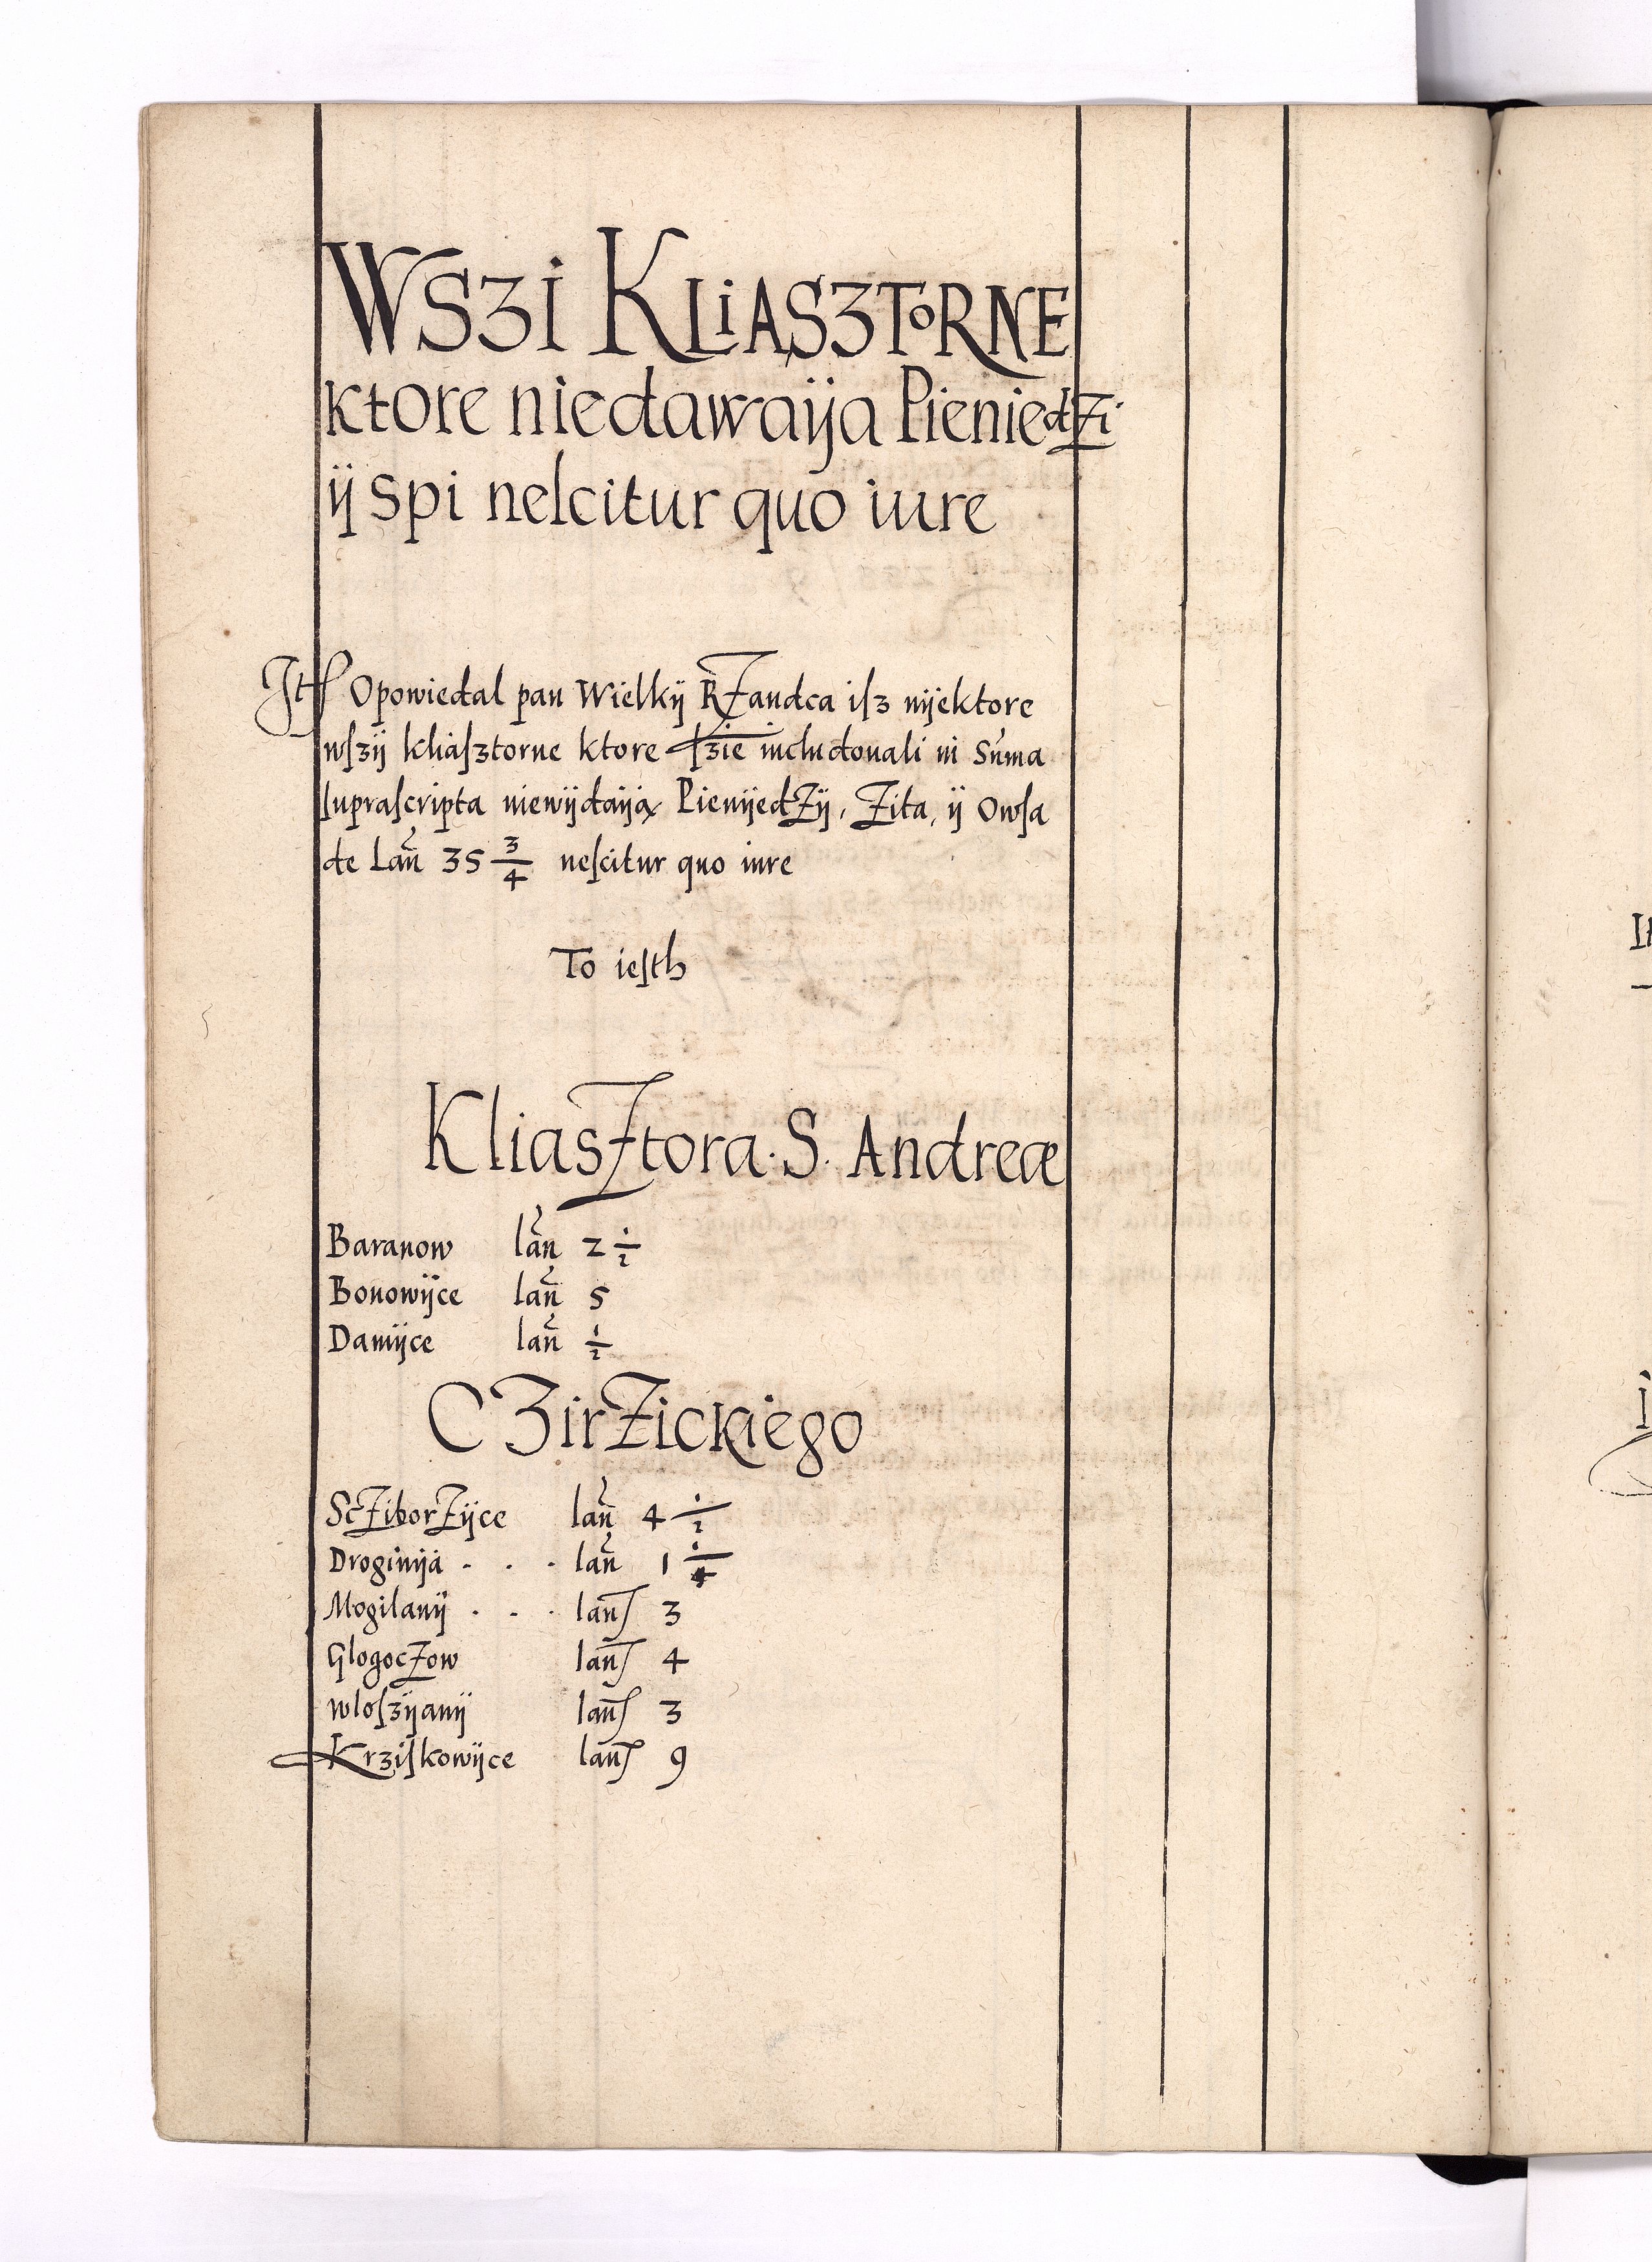 WSZI KLIASZTORNE
ktore niedawaija Pieniedzi
ij spi nescitur quo iure
Opowiedal pan Wielkij Rzandca isz nijektore
wszij kliasztorne ktore szie includowali in Suma
suprascripta niewijdaija Pienijedzij, Zita, ij Owsa
de Lan 35 3/4 nescitur quo iure
To iesth
Kliasztora. S. Andreæ
Baranow lan 2 1/2
Bonowijce lan 5
Damijce lan 1/2
CZirzickiego
Scziborzijce lan 4 1/2
Droginija . . . lan 1 1/4
Mogilanij . . . lan 3
Glogoczow lan 4
wloszijanij lan 3
Krziskowijce lan 9